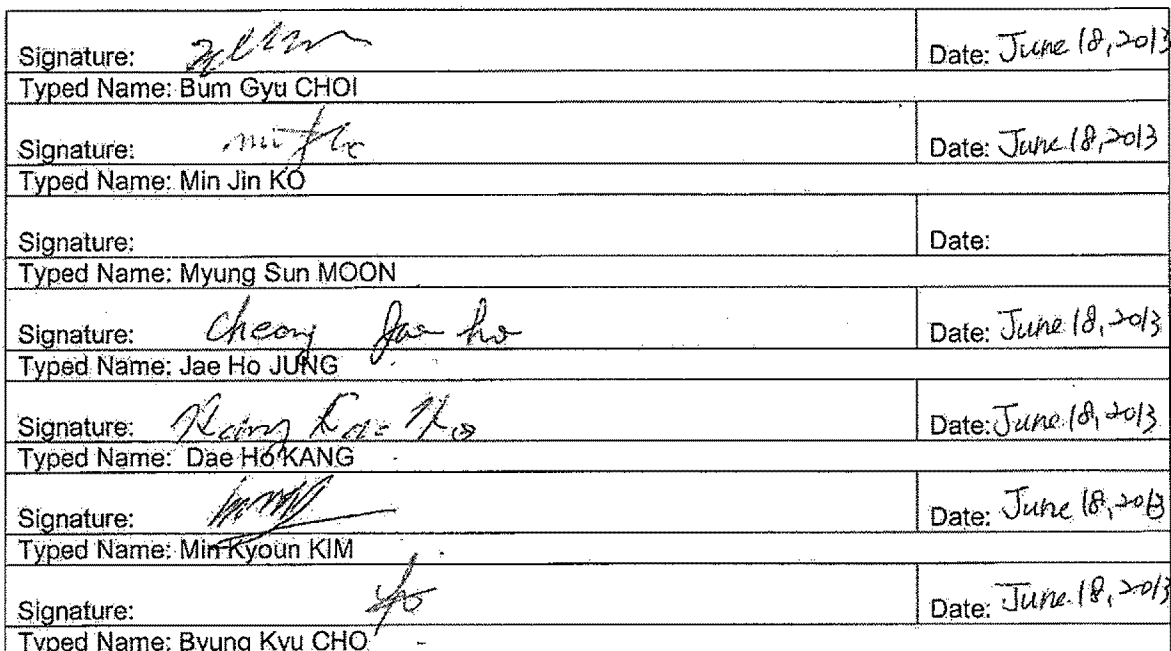 Signature: Date: June 18, 2013
Typed Name: Bum Gyu CHOI
Signature: Date: June 18, 2013
Typed Name: Min Jin KO
Signature: Date:
Typed Name: Myung Sun MOON
Signature: Cheong Jae ho Date: June 18, 2013
Typed Name: Jae Ho JUNG
Signature: Kang Date: June 18, 2013
Typed Name: Dae Ho KANG
Signature: Date: June 18, 2013
Typed Name: Min Kyoun KIM
Signature: Date: June 18, 2013
Typed Name: Byung Kyu CHO